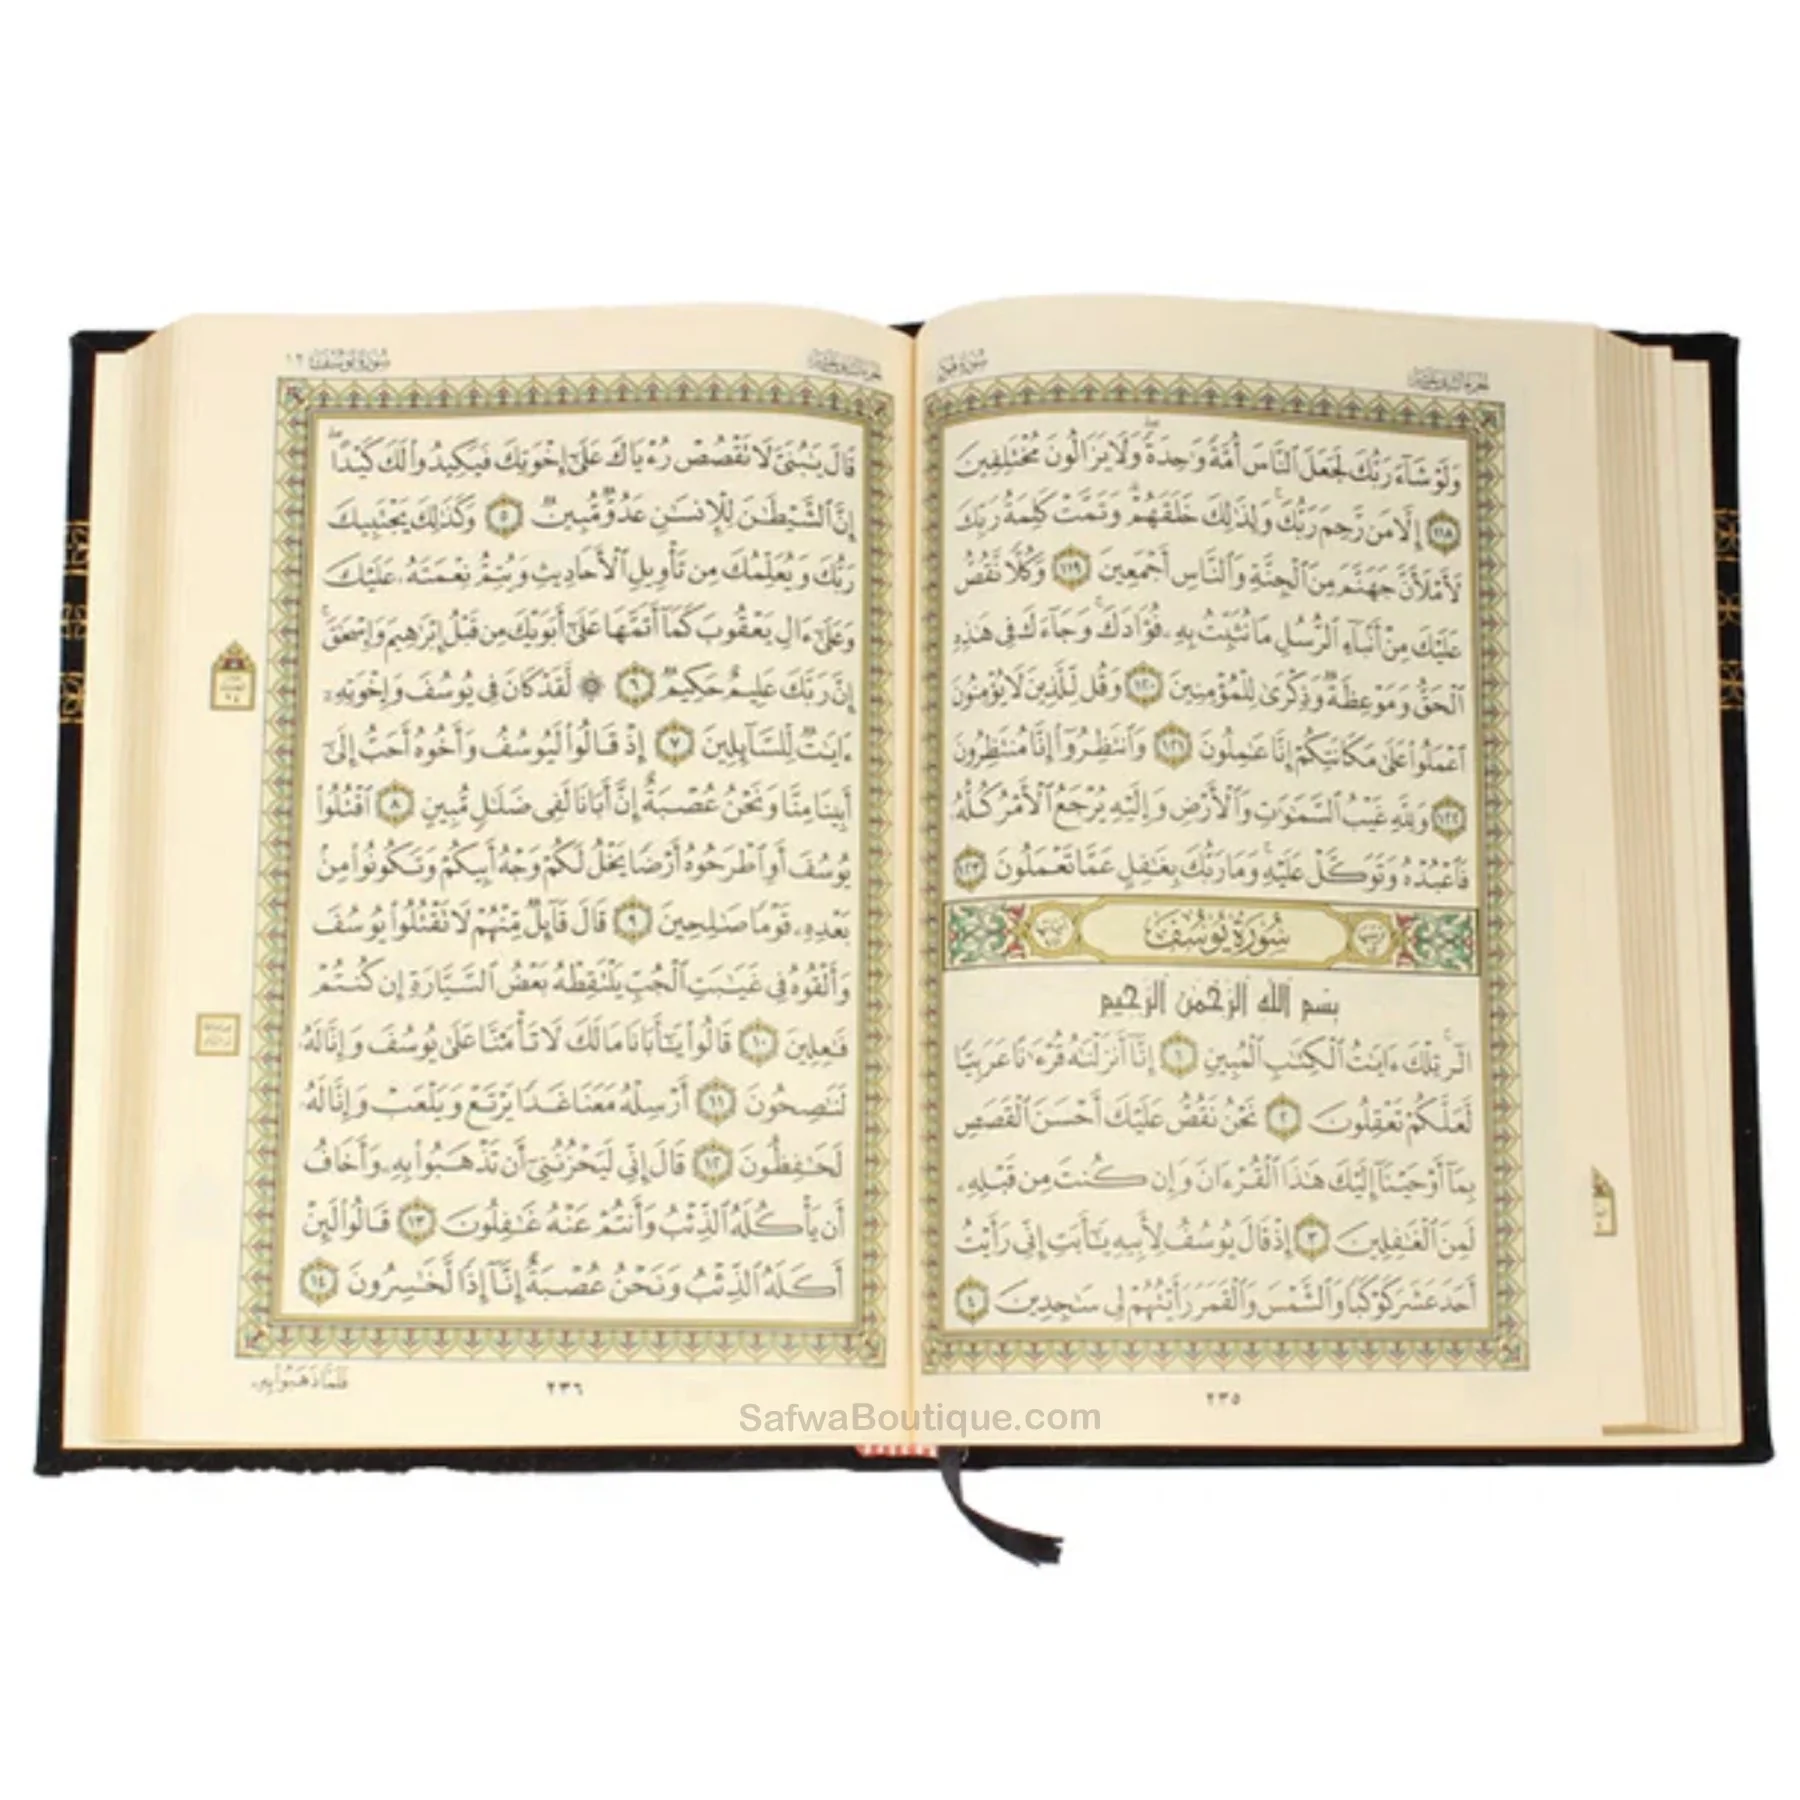 سُورَةُ هُودٍ
وَلَوْ شَآءَ رَبُّكَ لَجَعَلَ ٱلنَّاسَ أُمَّةً وَٰحِدَةً ۖ وَلَا يَزَالُونَ مُخْتَلِفِينَ
١١٨ إِلَّا مَن رَّحِمَ رَبُّكَ ۚ وَلِذَٰلِكَ خَلَقَهُمْ ۗ وَتَمَّتْ كَلِمَةُ رَبِّكَ
لَأَمْلَأَنَّ جَهَنَّمَ مِنَ ٱلْجِنَّةِ وَٱلنَّاسِ أَجْمَعِينَ ١١٩ وَكُلًّا نَّقُصُّ
عَلَيْكَ مِنْ أَنۢبَآءِ ٱلرُّسُلِ مَا نُثَبِّتُ بِهِۦ فُؤَادَكَ ۚ وَجَآءَكَ فِى هَٰذِهِ
ٱلْحَقُّ وَمَوْعِظَةٌ وَذِكْرَىٰ لِلْمُؤْمِنِينَ ١٢٠ وَقُل لِّلَّذِينَ لَا يُؤْمِنُونَ
ٱعْمَلُوا۟ عَلَىٰ مَكَانَتِكُمْ إِنَّا عَٰمِلُونَ ١٢١ وَٱنتَظِرُوٓا۟ إِنَّا مُنتَظِرُونَ
١٢٢ وَلِلَّهِ غَيْبُ ٱلسَّمَٰوَٰتِ وَٱلْأَرْضِ وَإِلَيْهِ يُرْجَعُ ٱلْأَمْرُ كُلُّهُۥ
فَٱعْبُدْهُ وَتَوَكَّلْ عَلَيْهِ ۚ وَمَا رَبُّكَ بِغَٰفِلٍ عَمَّا تَعْمَلُونَ ١٢٣
سُورَةُ يُوسُفَ
بِسْمِ ٱللَّهِ ٱلرَّحْمَٰنِ ٱلرَّحِيمِ
الٓر ۚ تِلْكَ ءَايَٰتُ ٱلْكِتَٰبِ ٱلْمُبِينِ ١ إِنَّآ أَنزَلْنَٰهُ قُرْءَٰنًا عَرَبِيًّا
لَّعَلَّكُمْ تَعْقِلُونَ ٢ نَحْنُ نَقُصُّ عَلَيْكَ أَحْسَنَ ٱلْقَصَصِ
بِمَآ أَوْحَيْنَآ إِلَيْكَ هَٰذَا ٱلْقُرْءَانَ وَإِن كُنتَ مِن قَبْلِهِۦ
لَمِنَ ٱلْغَٰفِلِينَ ٣ إِذْ قَالَ يُوسُفُ لِأَبِيهِ يَٰٓأَبَتِ إِنِّى رَأَيْتُ
أَحَدَ عَشَرَ كَوْكَبًا وَٱلشَّمْسَ وَٱلْقَمَرَ رَأَيْتُهُمْ لِى سَٰجِدِينَ ٤
٢٣٥
سُورَةُ يُوسُفَ ١٢
قَالَ يَٰبُنَىَّ لَا تَقْصُصْ رُءْيَاكَ عَلَىٰٓ إِخْوَتِكَ فَيَكِيدُوا۟ لَكَ كَيْدًا ۖ
إِنَّ ٱلشَّيْطَٰنَ لِلْإِنسَٰنِ عَدُوٌّ مُّبِينٌ ٥ وَكَذَٰلِكَ يَجْتَبِيكَ
رَبُّكَ وَيُعَلِّمُكَ مِن تَأْوِيلِ ٱلْأَحَادِيثِ وَيُتِمُّ نِعْمَتَهُۥ عَلَيْكَ
وَعَلَىٰٓ ءَالِ يَعْقُوبَ كَمَآ أَتَمَّهَا عَلَىٰٓ أَبَوَيْكَ مِن قَبْلُ إِبْرَٰهِيمَ وَإِسْحَٰقَ ۚ
إِنَّ رَبَّكَ عَلِيمٌ حَكِيمٌ ٦ ۞ لَّقَدْ كَانَ فِى يُوسُفَ وَإِخْوَتِهِۦٓ
ءَايَٰتٌ لِّلسَّآئِلِينَ ٧ إِذْ قَالُوا۟ لَيُوسُفُ وَأَخُوهُ أَحَبُّ إِلَىٰٓ
أَبِينَا مِنَّا وَنَحْنُ عُصْبَةٌ إِنَّ أَبَانَا لَفِى ضَلَٰلٍ مُّبِينٍ ٨ ٱقْتُلُوا۟
يُوسُفَ أَوِ ٱطْرَحُوهُ أَرْضًا يَخْلُ لَكُمْ وَجْهُ أَبِيكُمْ وَتَكُونُوا۟ مِنۢ
بَعْدِهِۦ قَوْمًا صَٰلِحِينَ ٩ قَالَ قَآئِلٌ مِّنْهُمْ لَا تَقْتُلُوا۟ يُوسُفَ
وَأَلْقُوهُ فِى غَيَٰبَتِ ٱلْجُبِّ يَلْتَقِطْهُ بَعْضُ ٱلسَّيَّارَةِ إِن كُنتُمْ
فَٰعِلِينَ ١٠ قَالُوا۟ يَٰٓأَبَانَا مَا لَكَ لَا تَأْمَ۫نَّا عَلَىٰ يُوسُفَ وَإِنَّا لَهُۥ
لَنَٰصِحُونَ ١١ أَرْسِلْهُ مَعَنَا غَدًا يَرْتَعْ وَيَلْعَبْ وَإِنَّا لَهُۥ
لَحَٰفِظُونَ ١٢ قَالَ إِنِّى لَيَحْزُنُنِىٓ أَن تَذْهَبُوا۟ بِهِۦ وَأَخَافُ
أَن يَأْكُلَهُ ٱلذِّئْبُ وَأَنتُمْ عَنْهُ غَٰفِلُونَ ١٣ قَالُوا۟ لَئِنْ
أَكَلَهُ ٱلذِّئْبُ وَنَحْنُ عُصْبَةٌ إِنَّآ إِذًا لَّخَٰسِرُونَ ١٤
فَلَمَّا ذَهَبُوا۟ بِهِۦ
٢٣٦
SafwaBoutique.com